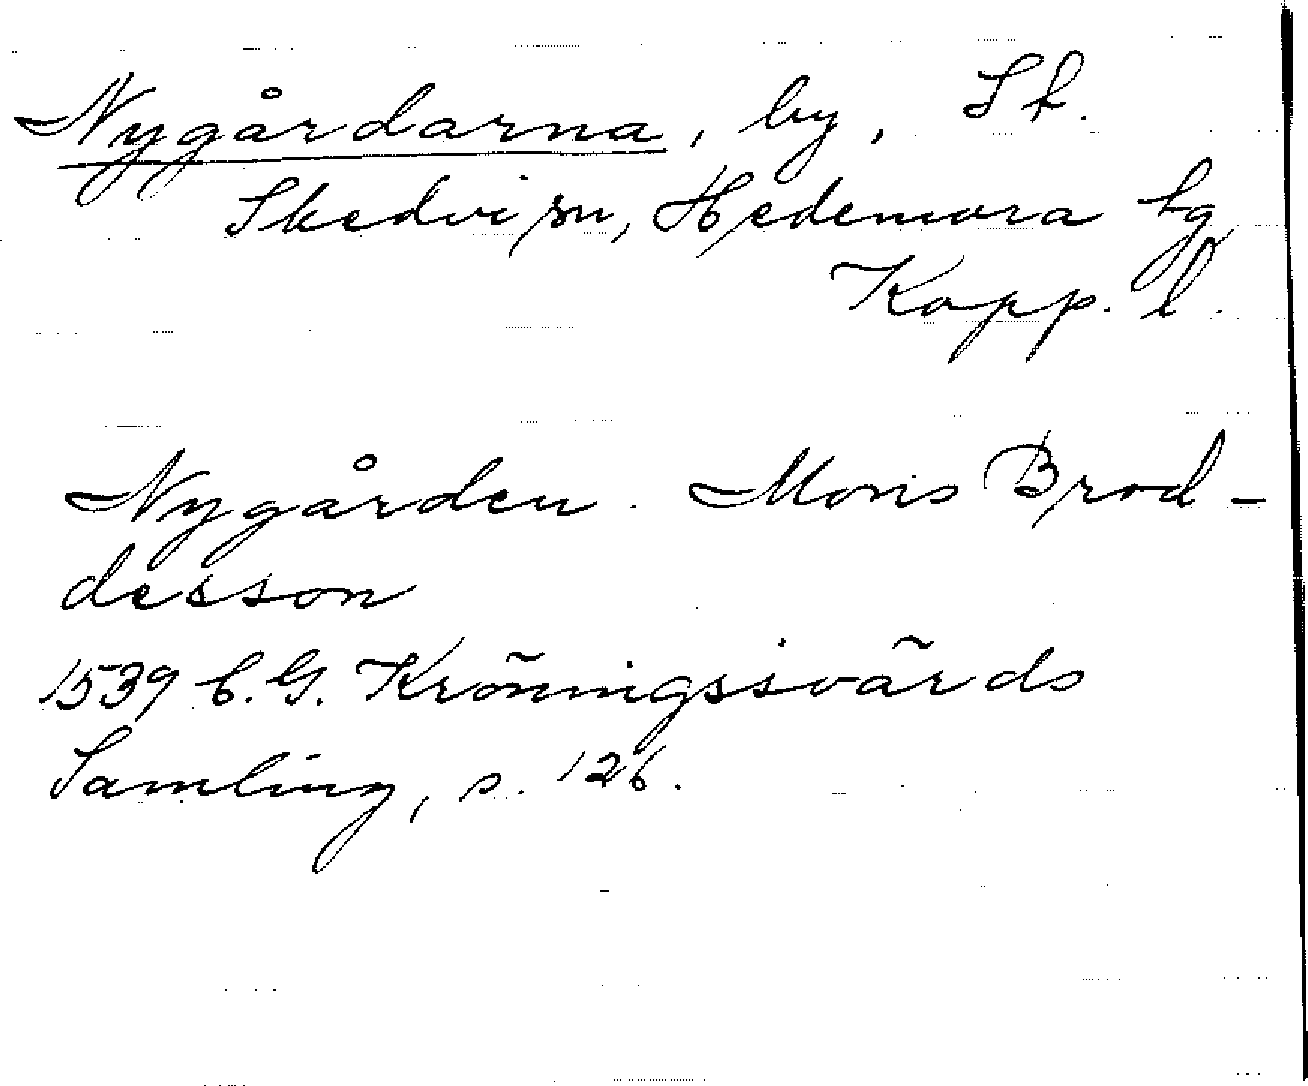 Nygårdarna, by, St.
Skedvi sn, Hedemora tg
Kopp. l.
Nygården. Mons Brod-
desson
1539 C. G. Kröningssvärds
Samling, s. 126.